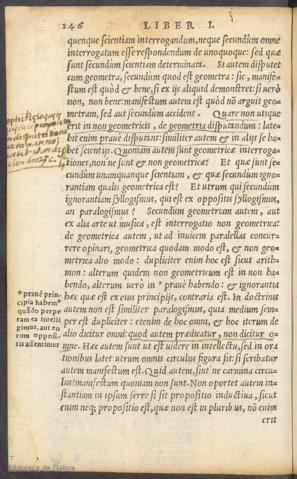 246
LIBER I.
quenque scientiam interrogandum, neque secundùm omne
interrogatum esse respondendum de unoquoque: sed quæ
sunt secundum scientiam determinata. Si autem disputet
cum geometra, secundum quod est geometra: sic, manife-
stum est quòd & bene, si ex ijs aliquid demonstret: si uerò
non, non bene: manifestum autem est quòd nõ arguit geo-
metram, sed aut secundum accidens. Quare non utique
erit in non geometricis, de geometria disputandum: late-
bit enim prauè disputans: similiter autem & in alijs se ha-
bet scientijs. Quoniam autem sunt geometricæ interroga-
tiones, non ne sunt & non geometricæ? Et quæ sunt se-
cundum unanquanque scientiam, & quæ secundum igno-
rantiam qualis geometrica est? Et utrum qui secundum
ignorantiam syllogismus, qui est ex oppositis syllogismus,
an paralogismus? Secundum geometriam autem, aut
ex alia arte ut musica, est interrogatio non geometrica:
de geometria autem, ut ad inuicem parallelas concur-
rere opinari, geometrica quodam modo est, & non geo-
metrica alio modo: dupliciter enim hoc est sicut arith-
mon: alterum quidem non geometricum est in non ha-
bendo, alterum uero in * prauè habendo: & ignorantia
hæc quæ est ex eius principijs, contraria est. In doctrinis
autem non est similiter paralogismus, quia medium sem-
per est dupliciter: etenim de hoc omni, & hoc iterum de
alio dicitur omni: quod autem prædicatur, non dicitur o-
mne. Hæc autem sunt ut est uidere in intellectu, sed in ora-
tionibus latet utrum omnis circulus figura sit: si scribatur
autem manifestum est. Quid autem, sint ne carmina circu-
lus? manifestum quoniam non sunt. Non oportet autem in-
stantiam in ipsum ferre si sit propositio inductiua, sicut
enim neq; propositio est, quæ non est in pluribus, nõ enim
erit
* prauè prin-
cipia haben
do per
ram ea intelli
gimus, aut eo
rum opposi-
tis assentimur
Biblioteca de Galicia